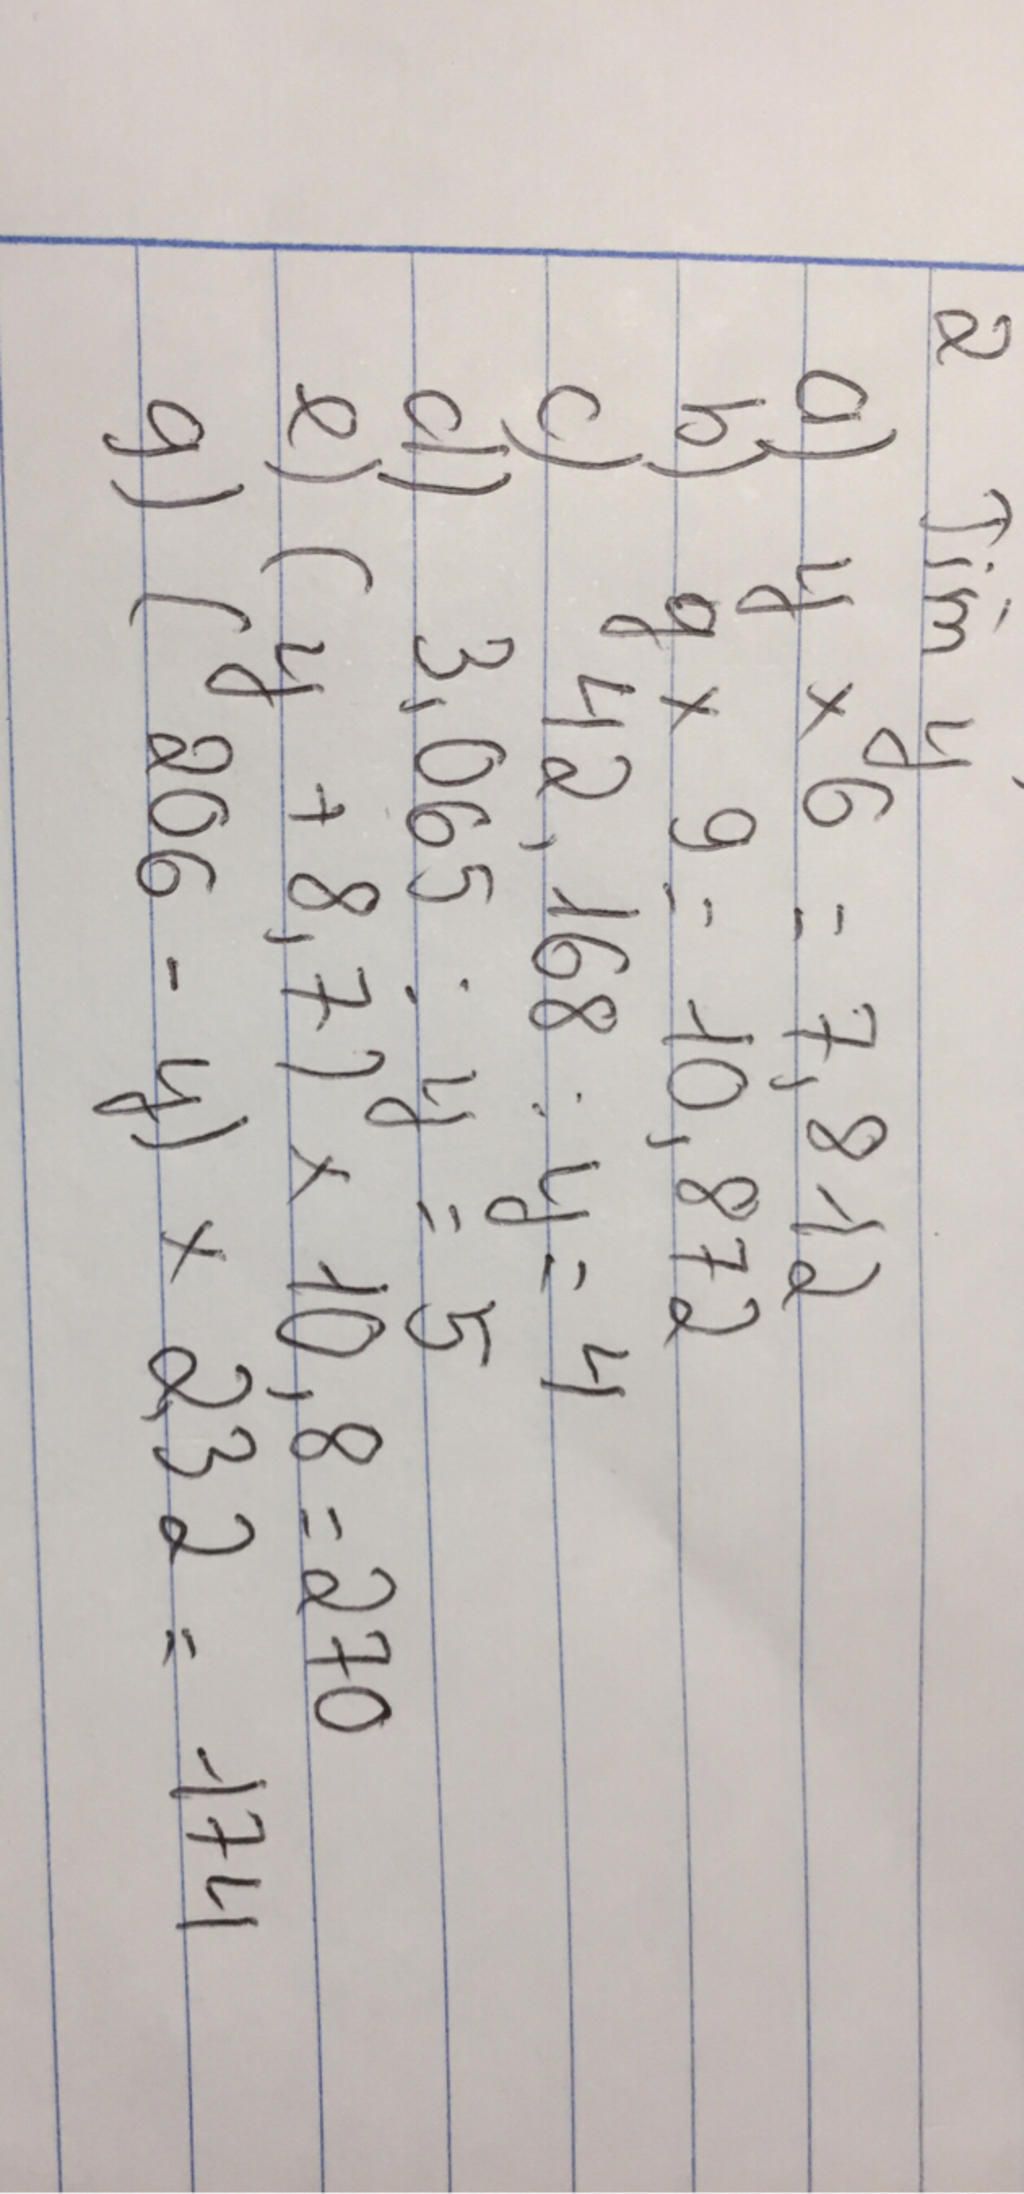 2 Tìm y
a) y × 6 = 7,812
b) y × 9 = 10,872
c) 42,168 : y = 4
d) 3,065 : y = 5
e) (y + 8,7) × 10,8 = 270
g) (206 - y) × 2,32 = 174